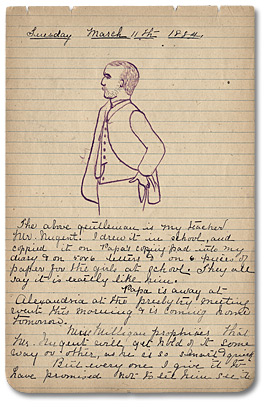 Tuesday March 11th 1884.
The above gentleman is my teacher
Mr. Nugent. I drew it in school, and
copied it on Papa's copying pad into my
diary & on 5 or 6 letters & on 6 pieces of
paper for the girls at school. They all
say it is really like him.
Papa is away at
Alexandria at the presbytery meeting
went this morning & is coming home
tomorrow.
Mrs. Milligan prophesies that
Mr. Nugent will get hold of it some
way or other, as he is so smart
But every one I give it to
have promised not to let him see it